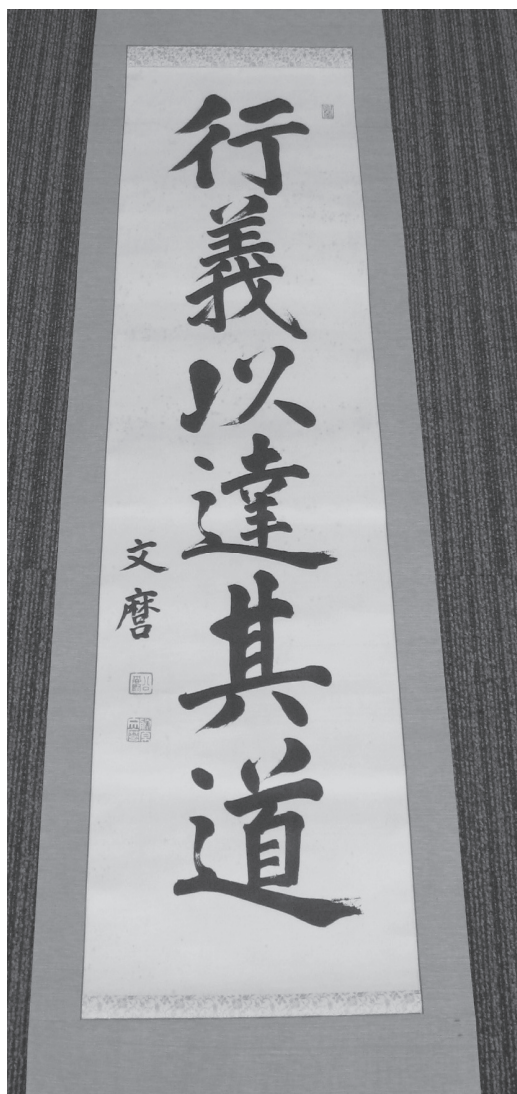 行義以達其道
文麿